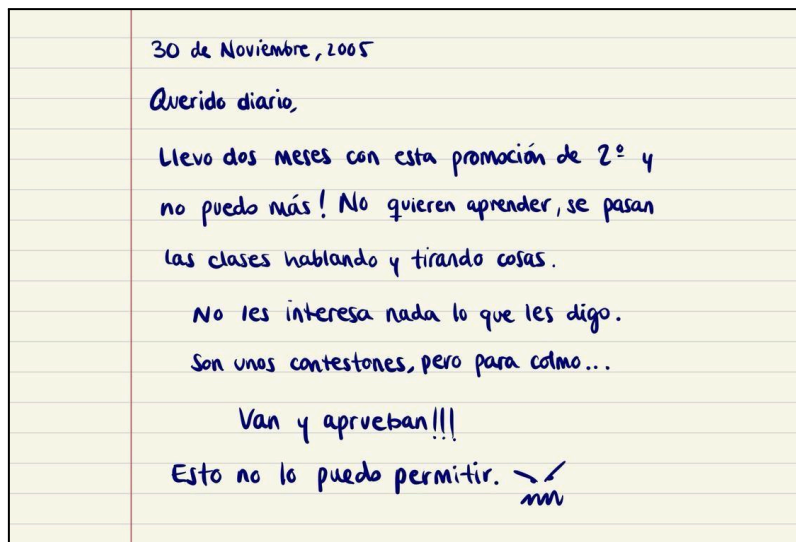 30 de Noviembre, 2005
Querido diario,
Llevo dos meses con esta promoción de 2º y
no puedo más! No quieren aprender, se pasan
las clases hablando y tirando cosas.
No les interesa nada lo que les digo.
Son unos contestones, pero para colmo...
Van y aprueban!!!
Esto no lo puedo permitir.